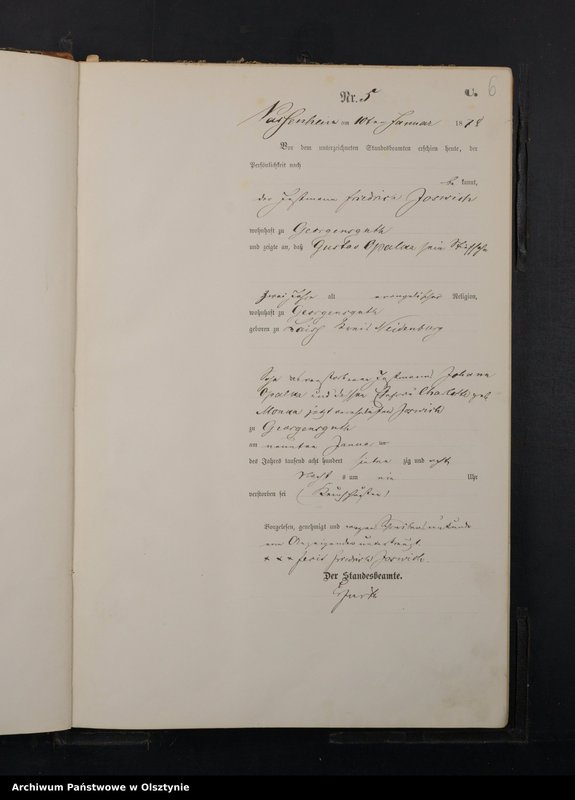 Nr. 5
C.
6
Passenheim am 10ten Januar 1878
Vor dem unterzeichneten Standesbeamten erschien heute, der
Persönlichkeit nach
be kannt,
der Instmann Friedrich Jorwich
wohnhaft zu Georgensguth
und zeigte an, daß Gustav Opalka sein Stiefsohn
zwei Jahr alt evangelischer Religion,
wohnhaft zu Georgensguth
geboren zu Kreis Neidenburg
Sohn des verstorbenen Instmanns Johann
Opalka und dessen Ehefrau Charlotte geb.
jetzt verehelichten Jorwich
zu Georgensguth
am neunten Januar
des Jahres tausend acht hundert sieben zig und acht
Nachts um Uhr
verstorben sei
Vorgelesen, genehmigt und wegen Schreibensunkunde
vom Anzeigenden unterkreuzt
+ + + Friedrich Jorwich
Der Standesbeamte.